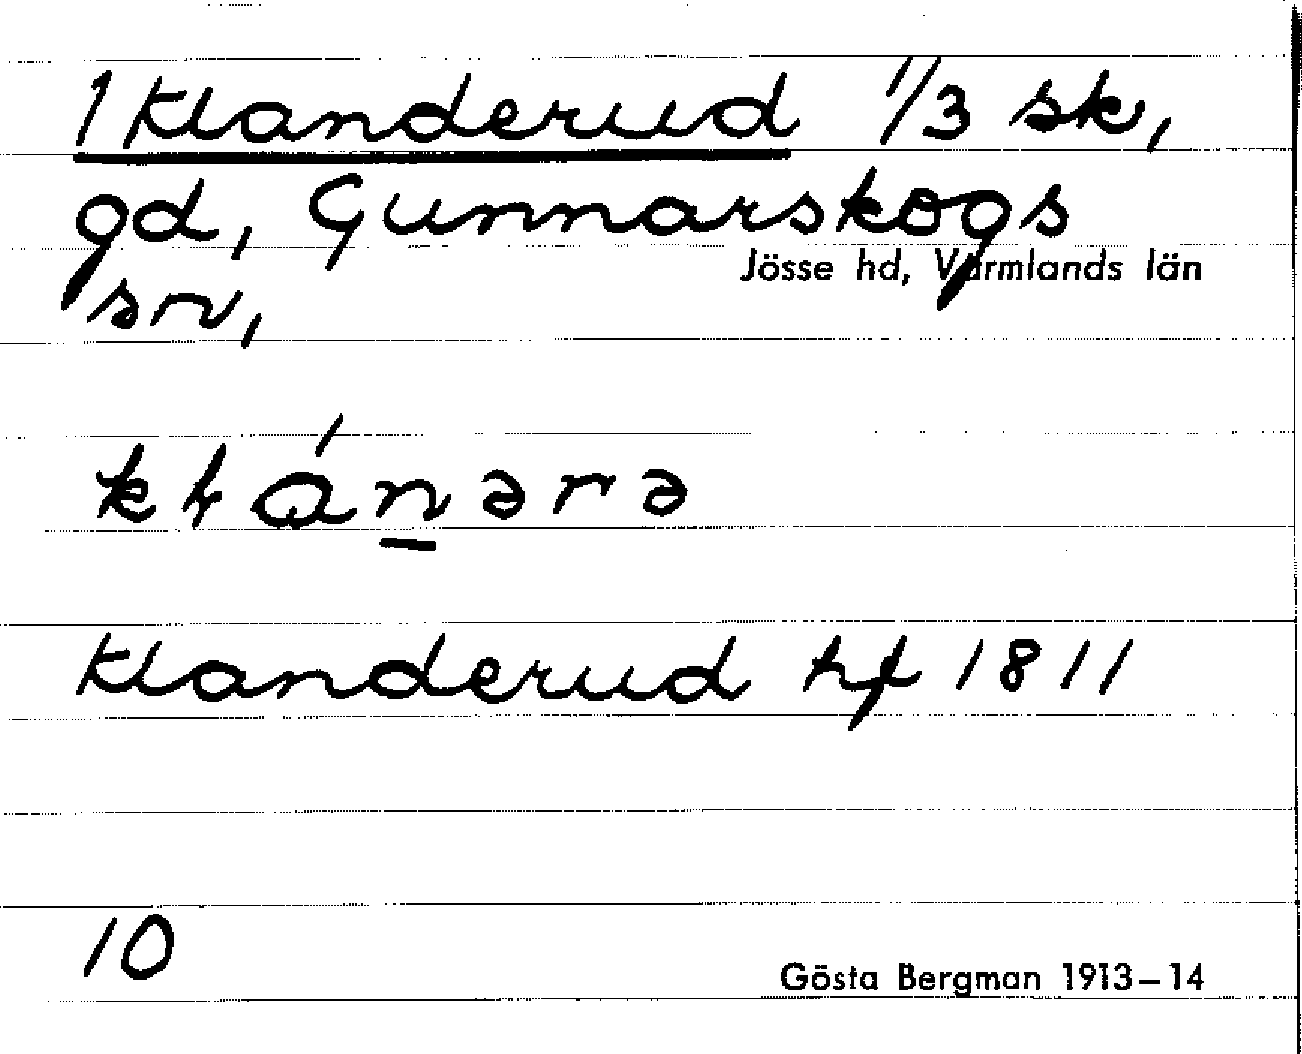 1 Klanderud 1/3 sk,
gd, Gunnarskogs
Jösse hd, Värmlands län
sn,
kłánərə
Klanderud hf 1811
10
Gösta Bergman 1913–14